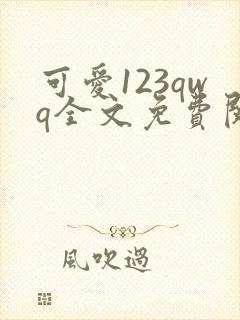 可愛123qw
q全文免費閱
風吹過